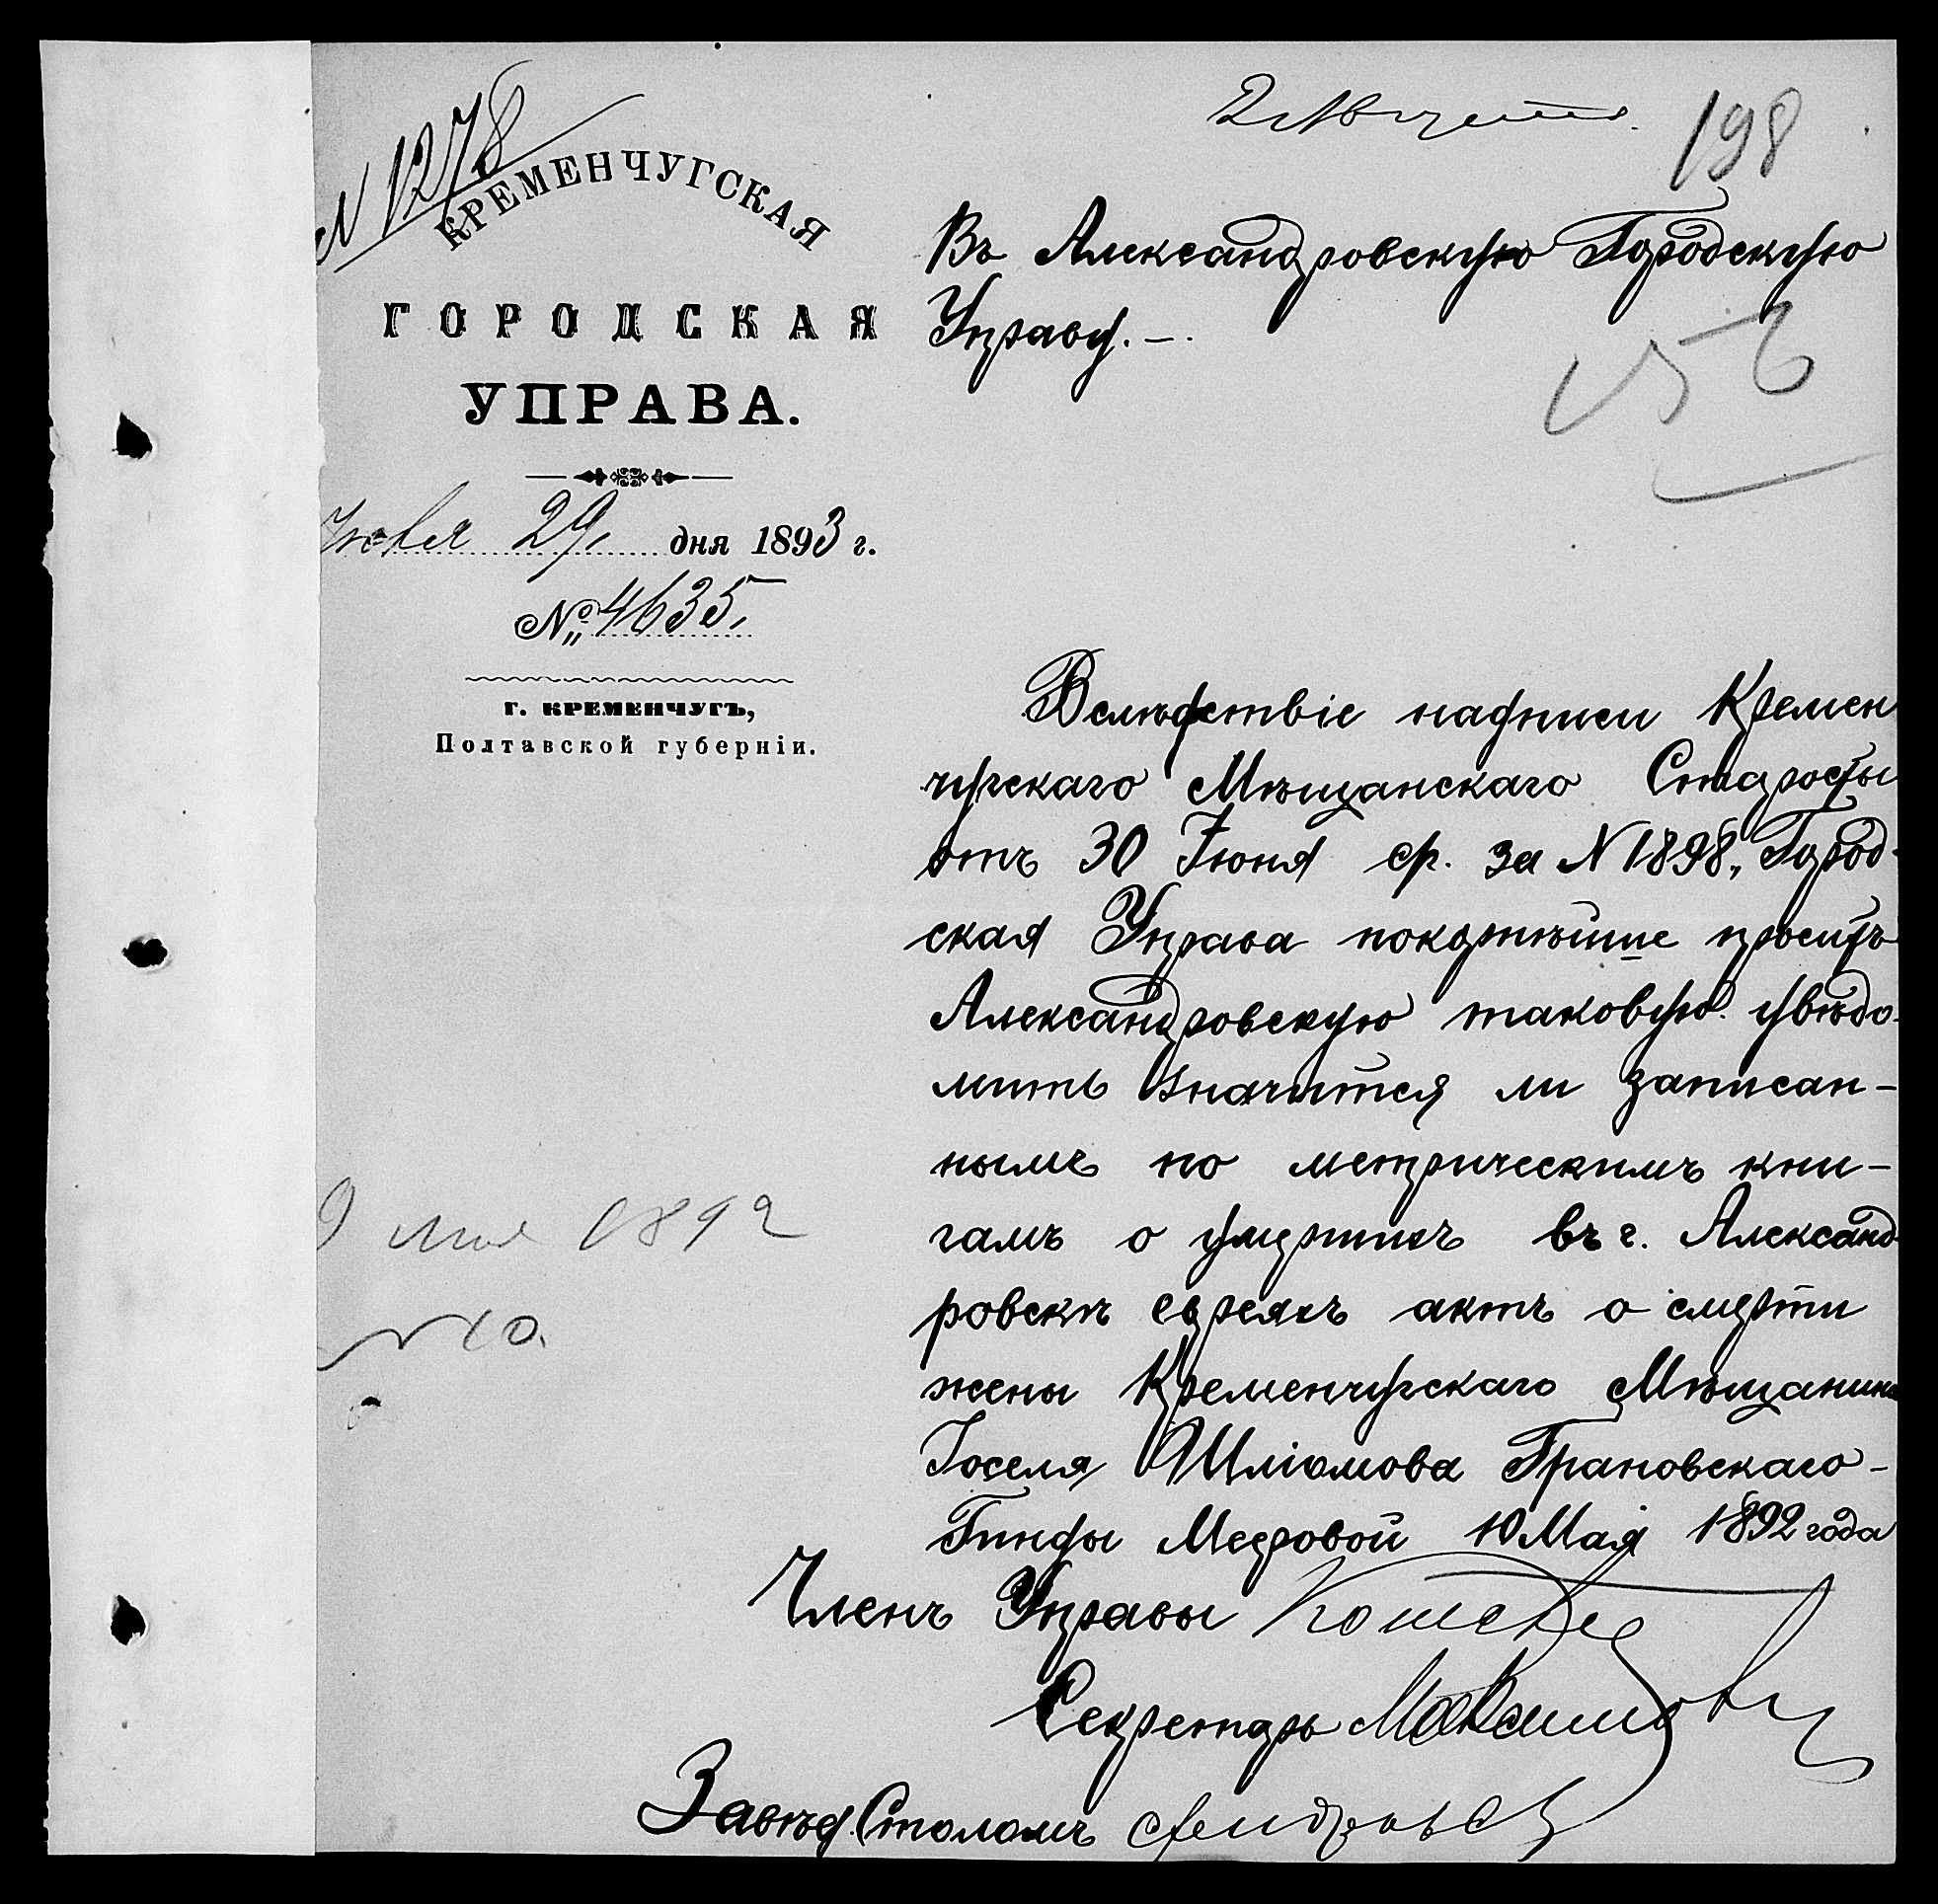 N 1278
КРЕМЕНЧУГСКАЯ
ГОРОДСКАЯ
УПРАВА.
Июля 29, дня 1893 г.
№ 4635,
г. КРЕМЕНЧУГЪ,
Полтавской губерніи.
2 Августа.
198
Въ Александровскую Городскую
Управу. —.
Вслѣдствіе надписи Кремен
чугскаго Мѣщанскаго Старосты
отъ 30 Іюня с.г. за N 1898, Город-
ская Управа покорнѣйше проситъ
Александровскую таковую увѣдо-
мить значится ли записан-
нымъ по метрическимъ кни-
гамъ о умершихъ въ г. Александ
ровскѣ евреяхъ актъ о смерти
жены Кременчугскаго Мѣщанина
Іоселя Шліомова Грановскаго -
Гинды Мееровой 10 Мая 1892 года
9 мая 1892
N 10.
Членъ Управы
Секретарь Максимов
Завѣд. Столомъ